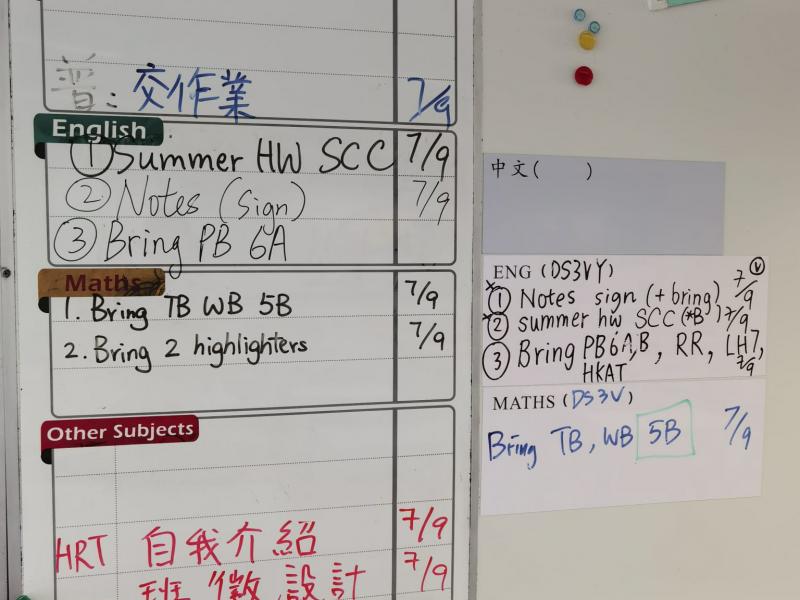 普：交作業 7/9
English
① Summer HW SCC 7/9
② Notes (sign) 7/9
③ Bring PB 6A
Maths
1. Bring TB WB 5B 7/9
2. Bring 2 highlighters 7/9
Other Subjects
HRT 自我介紹 7/9
班徽設計 7/9
中文( )
ENG (DS3VY)
① Notes sign (+ bring) 7/9
② summer hw SCC (*B ) 7/9
③ Bring PB6A,B, RR, LH7,
HKAT 7/9
MATHS (DS3V)
Bring TB, WB 5B 7/9